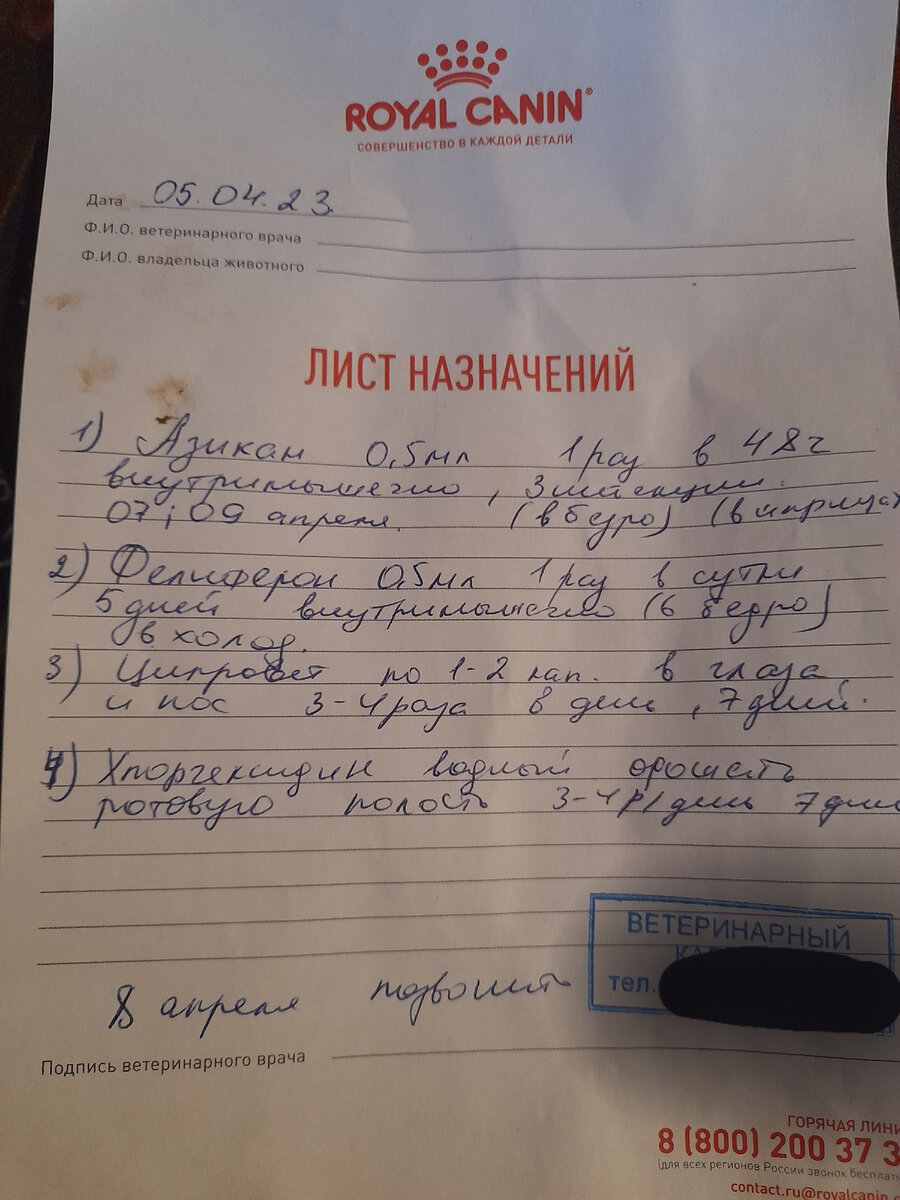 ROYAL CANIN®
СОВЕРШЕНСТВО В КАЖДОЙ ДЕТАЛИ
Дата 05.04.23
Ф.И.О. ветеринарного врача
Ф.И.О. владельца животного
ЛИСТ НАЗНАЧЕНИЙ
1) Азикан 0,5мл 1 раз в 48ч
внутримышечно, 3 инъекции.
07; 09 апреля. (в бедро) (в шприцах
2) Фелиферон 0,5мл 1 раз в сутки
5 дней внутримышечно (в бедро)
в холод.
3) Ципровет по 1-2 кап. в глаза
и нос 3-4 раза в день, 7 дней.
4) Хлоргексидин водный орошать
ротовую полость 3-4 р/день 7 дней
ВЕТЕРИНАРНЫЙ
тел.
8 апреля позвонить
Подпись ветеринарного врача
ГОРЯЧАЯ ЛИНИ
8 (800) 200 37 3
(для всех регионов России звонок бесплатн
contact.ru@royalcanin.c